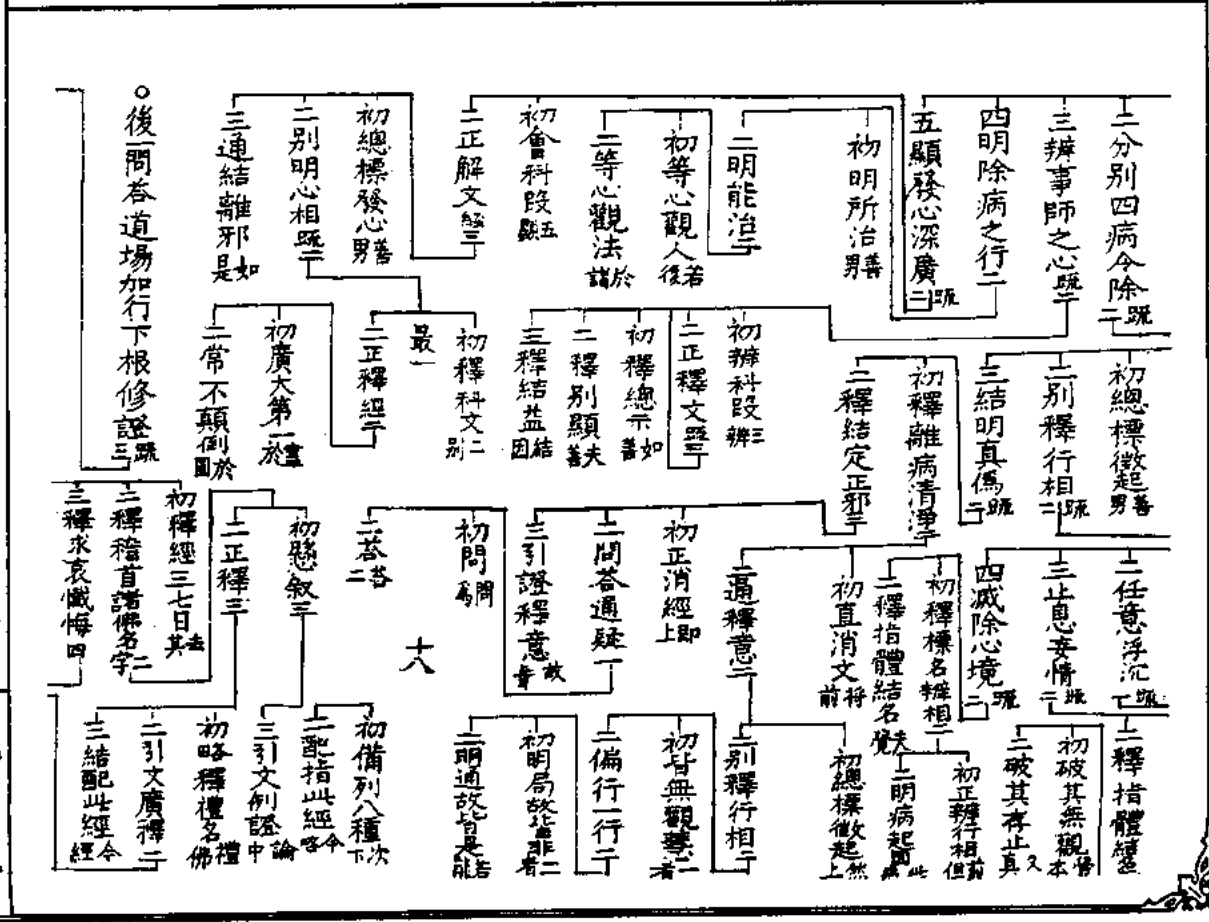 二分別四病令除二疏
三辨事師之心二疏
四明除病之行二
五顯發心深廣二疏
初明所治善男
二明能治二
初等心觀人若後
二等心觀法於諸
初會科段五顯
二正解文三經
初總標發心善男
二別明心相二疏
三通結離邪如是
○後一問荅道場加行下根修證三疏
初總標徵起善男
二別釋行相二疏
三結明真僞二疏
初釋離病清淨二
二釋結定正邪三
初辨科段三辨
二正釋文三疏
初釋總示如善
二釋別顯夫善
三釋結益結因
初釋科文二別
最一
二正釋經二
初廣大第一
二常不顛倒於圓
二任意浮沉二疏
三止息妄情二疏
四滅除心境二疏
初釋標名辨相二
二釋指體結名夫覺
初直消文將前
二通釋意二
初正消經即上
二問荅通疑二
三引證釋意故
初問問
二荅二荅
初懸叙三
二正釋三
初釋經三七日去其
二釋稽首諸佛名字二
三釋求哀懺悔四
二釋指體結
初破其無觀
二破其存止又真
初正辨行相前但
二明病起因此
初總標徵起然上
二別釋行相二
初皆無觀慧二
二偏行一行二
初明局故皆非二
二明通故皆是若能
大
初備列八種次下
二配指此經今略
三引文例證論中
初略釋禮名禮佛
二引文廣釋二
三結配此經今經